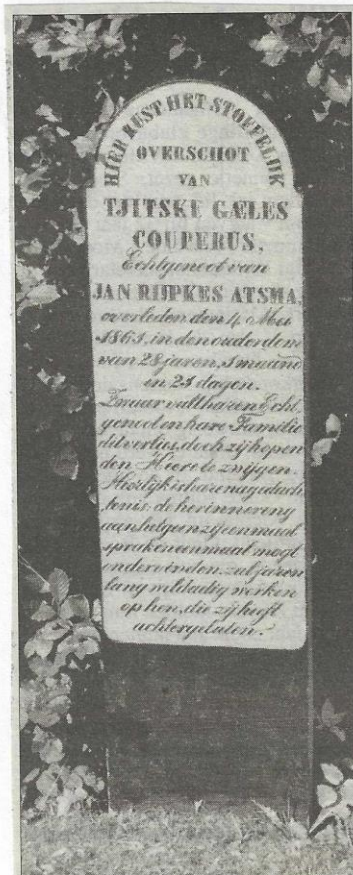 HIER RUST HET STOFFELIJK
OVERSCHOT
VAN
TJITSKE GÆLES
COUPERUS,
Echtgenoot van
JAN RIJPKES ATSMA,
overleden den 4 Mei
1861, in den ouderdom
van 28 jaren, 1 maand
en 21 dagen.
Zwaar valt haren Echt,
genoot en hare Familie
dit verlies, doch zij hopen
den Heere te zwijgen.
Heerlijk is hare nagedach,
tenis; de herinnering
aan hetgeen zij eenmaal
eenmaal mogt
ondervinden, zal jaren
lang weldadig werken
op hen, die zij heeft
achtergelaten.